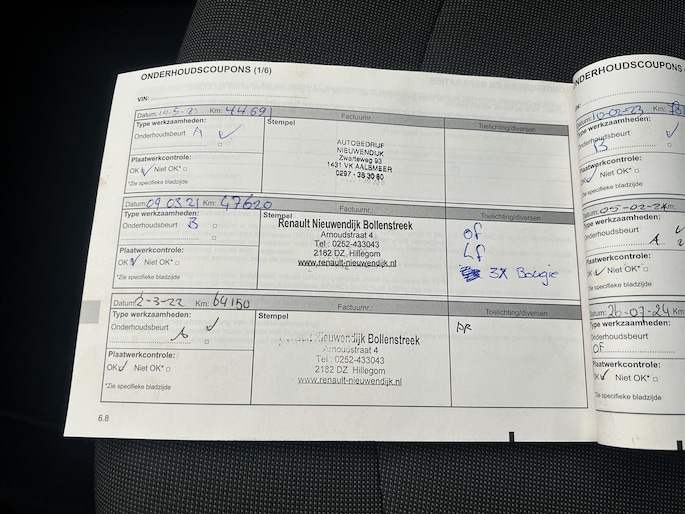 ONDERHOUDSCOUPONS (1/6)
VIN:
Datum: Km: 44691 Factuurnr.:
Type werkzaamheden: Stempel Toelichting/diversen
Onderhoudsbeurt A ✓
AUTOBEDRIJF
NIEUWENDIJK
Zwarteweg 93
1431 VK AALSMEER
0297 - 38 30 60
Plaatwerkcontrole:
OK ✓ Niet OK* □
*Zie specifieke bladzijde
Datum: 09 03 21 Km: 47620 Factuurnr.:
Type werkzaamheden: Stempel Toelichting/diversen
Onderhoudsbeurt B □
Renault Nieuwendijk Bollenstreek
Arnoudstraat 4
Tel : 0252-433043
2182 DZ, Hillegom
www.renault-nieuwendijk.nl
OF
LF
3X Bougie
Plaatwerkcontrole:
OK ✓ Niet OK* □
*Zie specifieke bladzijde
Datum: 2-3-22 Km: 64150 Factuurnr.:
Type werkzaamheden: Stempel Toelichting/diversen
Onderhoudsbeurt A ✓
Nieuwendijk Bollenstreek
Arnoudstraat 4
Tel : 0252-433043
2182 DZ, Hillegom
www.renault-nieuwendijk.nl
Plaatwerkcontrole:
OK ✓ Niet OK* □
*Zie specifieke bladzijde
6.8
ONDERHOUDSCOUPONS
Datum: 10-02-23 Km:
Type werkzaamheden:
Onderhoudsbeurt ✓
B
Plaatwerkcontrole:
OK ✓ Niet OK* □
*Zie specifieke bladzijde
Datum: 05-02-24 Km:
Type werkzaamheden:
Onderhoudsbeurt
A
Plaatwerkcontrole:
OK ✓ Niet OK* □
*Zie specifieke bladzijde
Datum: 26-07-24 Km:
Type werkzaamheden:
Onderhoudsbeurt
OF
Plaatwerkcontrole:
OK ✓ Niet OK* □
*Zie specifieke bladzijde